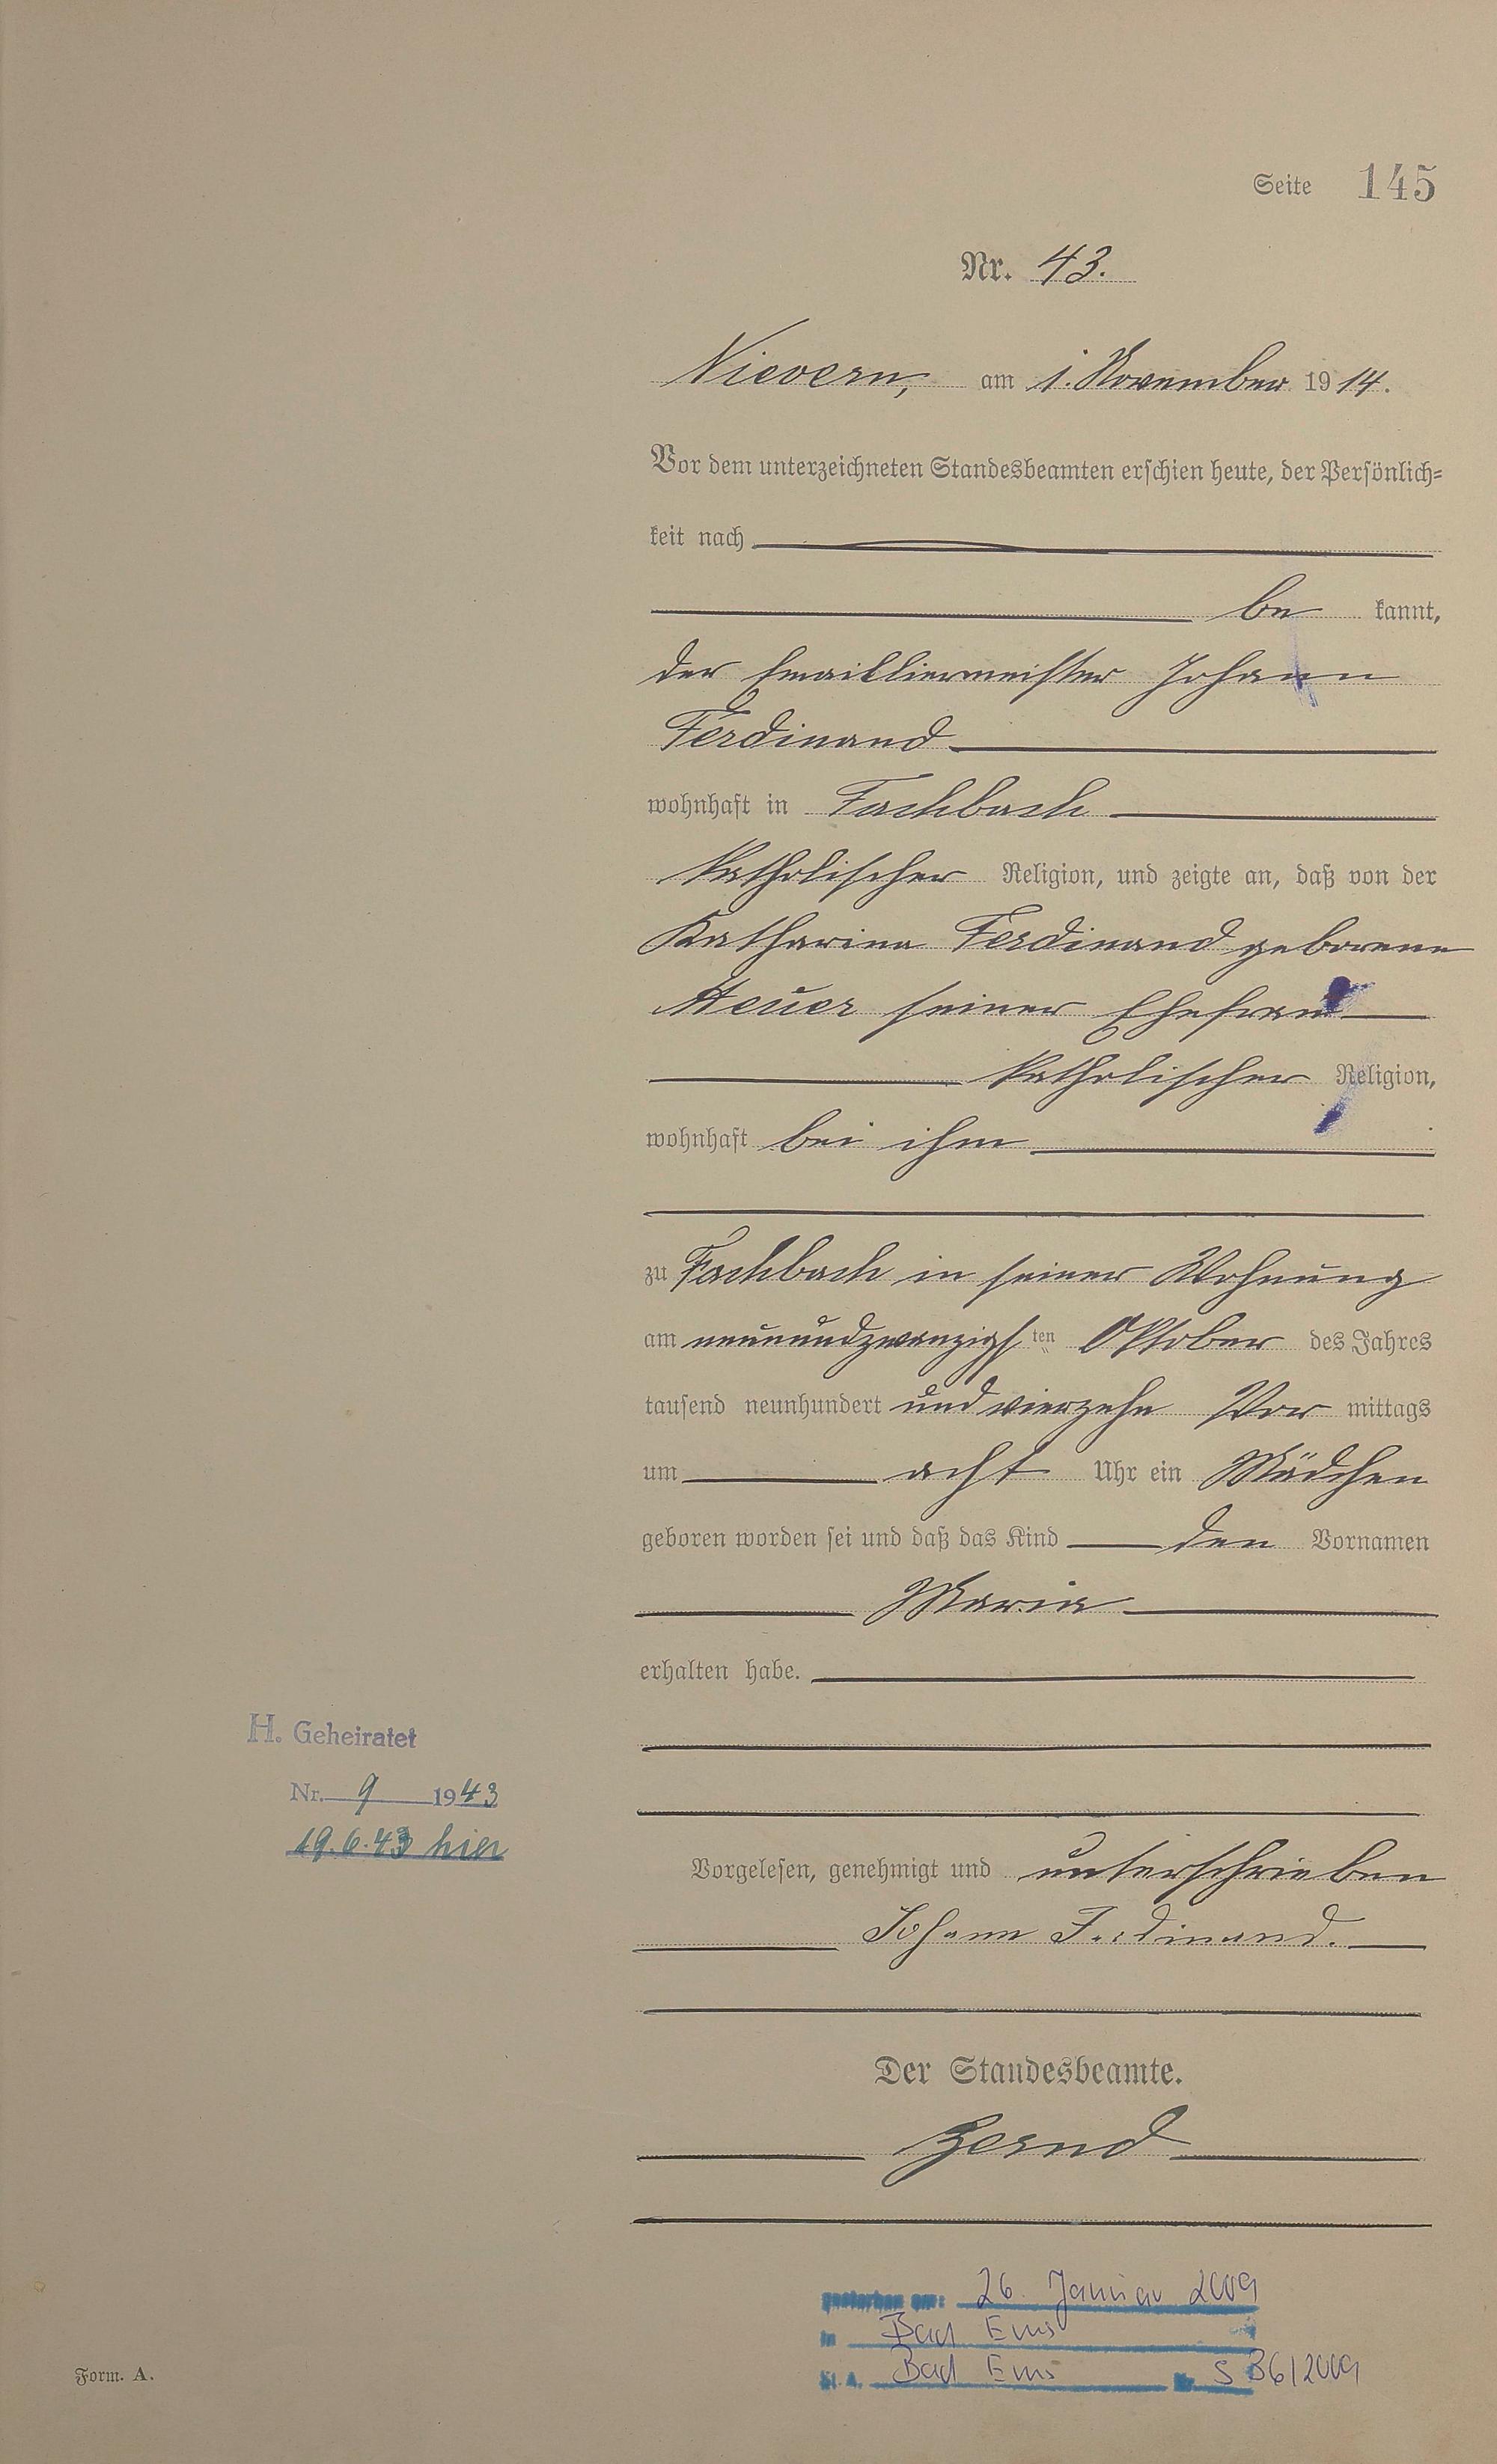 Seite 145
Nr. 43.
Nievern, am 1. November 1914.
Vor dem unterzeichneten Standesbeamten erschien heute, der Persönlich=
keit nach
be kannt,
der Emailliermeister Johann
Ferdinand
wohnhaft in Fachbach
katholischer Religion, und zeigte an, daß von der
Katharina Ferdinand geborene
Heuer seiner Ehefrau
katholischer Religion,
wohnhaft bei ihm
zu Fachbach in seiner Wohnung
am neunundzwanzigsten Oktober des Jahres
tausend neunhundert und vierzehn Vor mittags
um acht Uhr ein Mädchen
geboren worden sei und daß das Kind den Vornamen
Maria
erhalten habe.
H. Geheiratet
Nr. 9 1943
19.6.43 hier
Vorgelesen, genehmigt und unterschrieben
Johann Ferdinand.
Der Standesbeamte.
gestorben am: 26. Januar 2009
in Bad Ems
St. A. Bad Ems Nr. S 36/2009
Form. A.